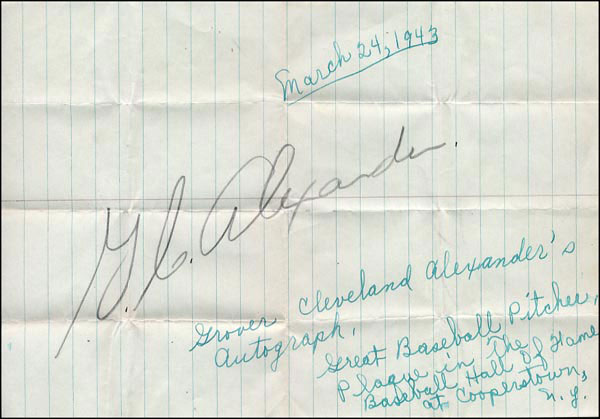 March 24, 1943
G. C. Alexander.
Grover Cleveland Alexander's
Autograph,
Great Baseball Pitcher,
Plaque in The
Baseball Hall of Fame
at Cooperstown,
N.Y.